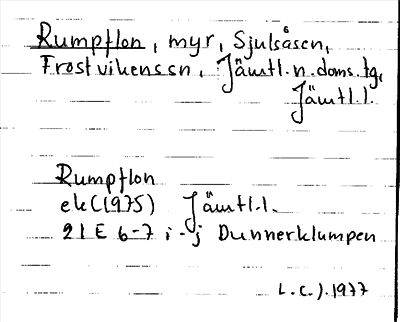 Rumpflon, myr, Sjulsåsen,
Frostvikenssn, Jämtl.n.doms.tg,
Jämtl.l.
Rumpflon
ek(1975) Jämtl.l.
21E 6-7 i-j Dunnerklumpen
L.C.J.1977